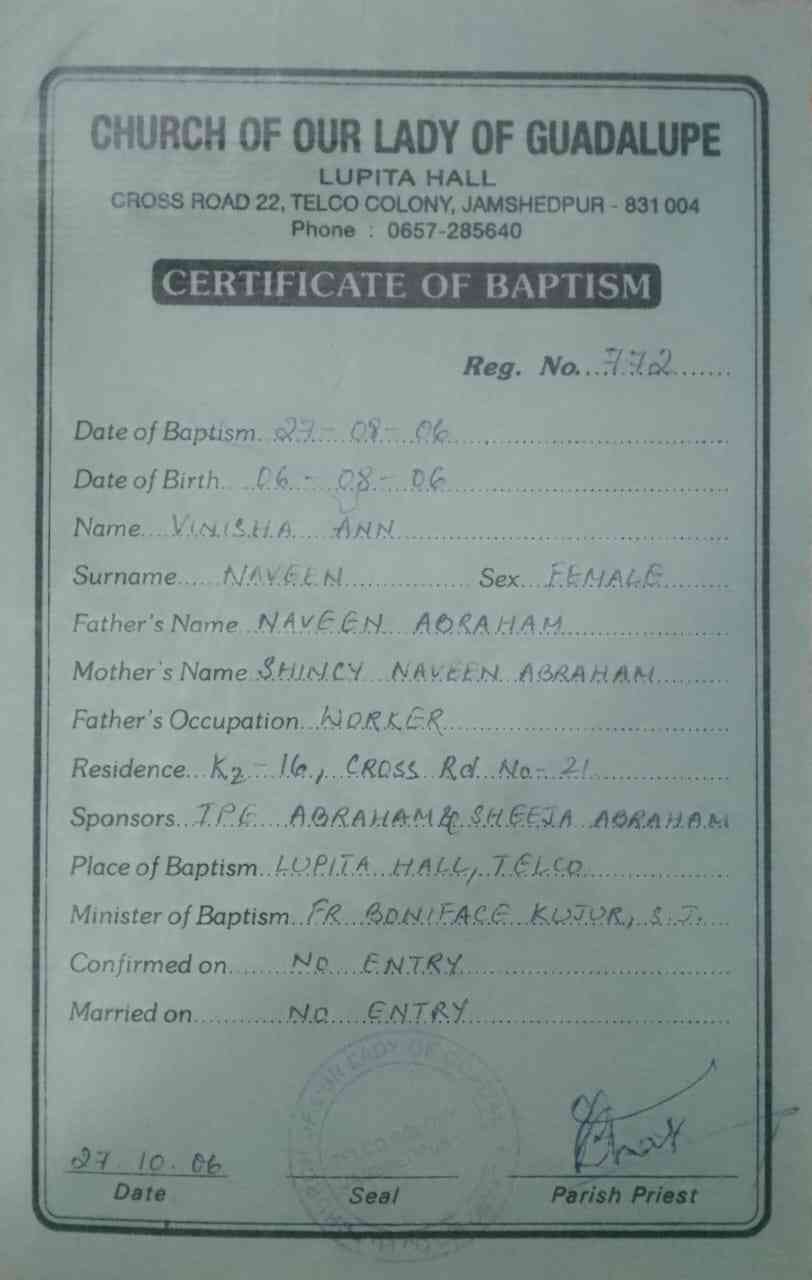 CHURCH OF OUR LADY OF GUADALUPE
LUPITA HALL
CROSS ROAD 22, TELCO COLONY, JAMSHEDPUR - 831 004
Phone : 0657-285640
CERTIFICATE OF BAPTISM
Reg. No. 772
Date of Baptism 27 - 08 - 06
Date of Birth 06 - 08 - 06
Name VINISHA ANN
Surname NAVEEN Sex FEMALE
Father's Name NAVEEN ABRAHAM
Mother's Name SHINCY NAVEEN ABRAHAM
Father's Occupation WORKER
Residence K2 - 16, CROSS Rd No - 21
Sponsors T.P.G ABRAHAM & SHEEJA ABRAHAM
Place of Baptism LUPITA HALL, TELCO
Minister of Baptism FR BONIFACE KUJUR, S.J.
Confirmed on NO ENTRY
Married on NO ENTRY
OUR LADY OF
27.10.06
Date Seal Parish Priest